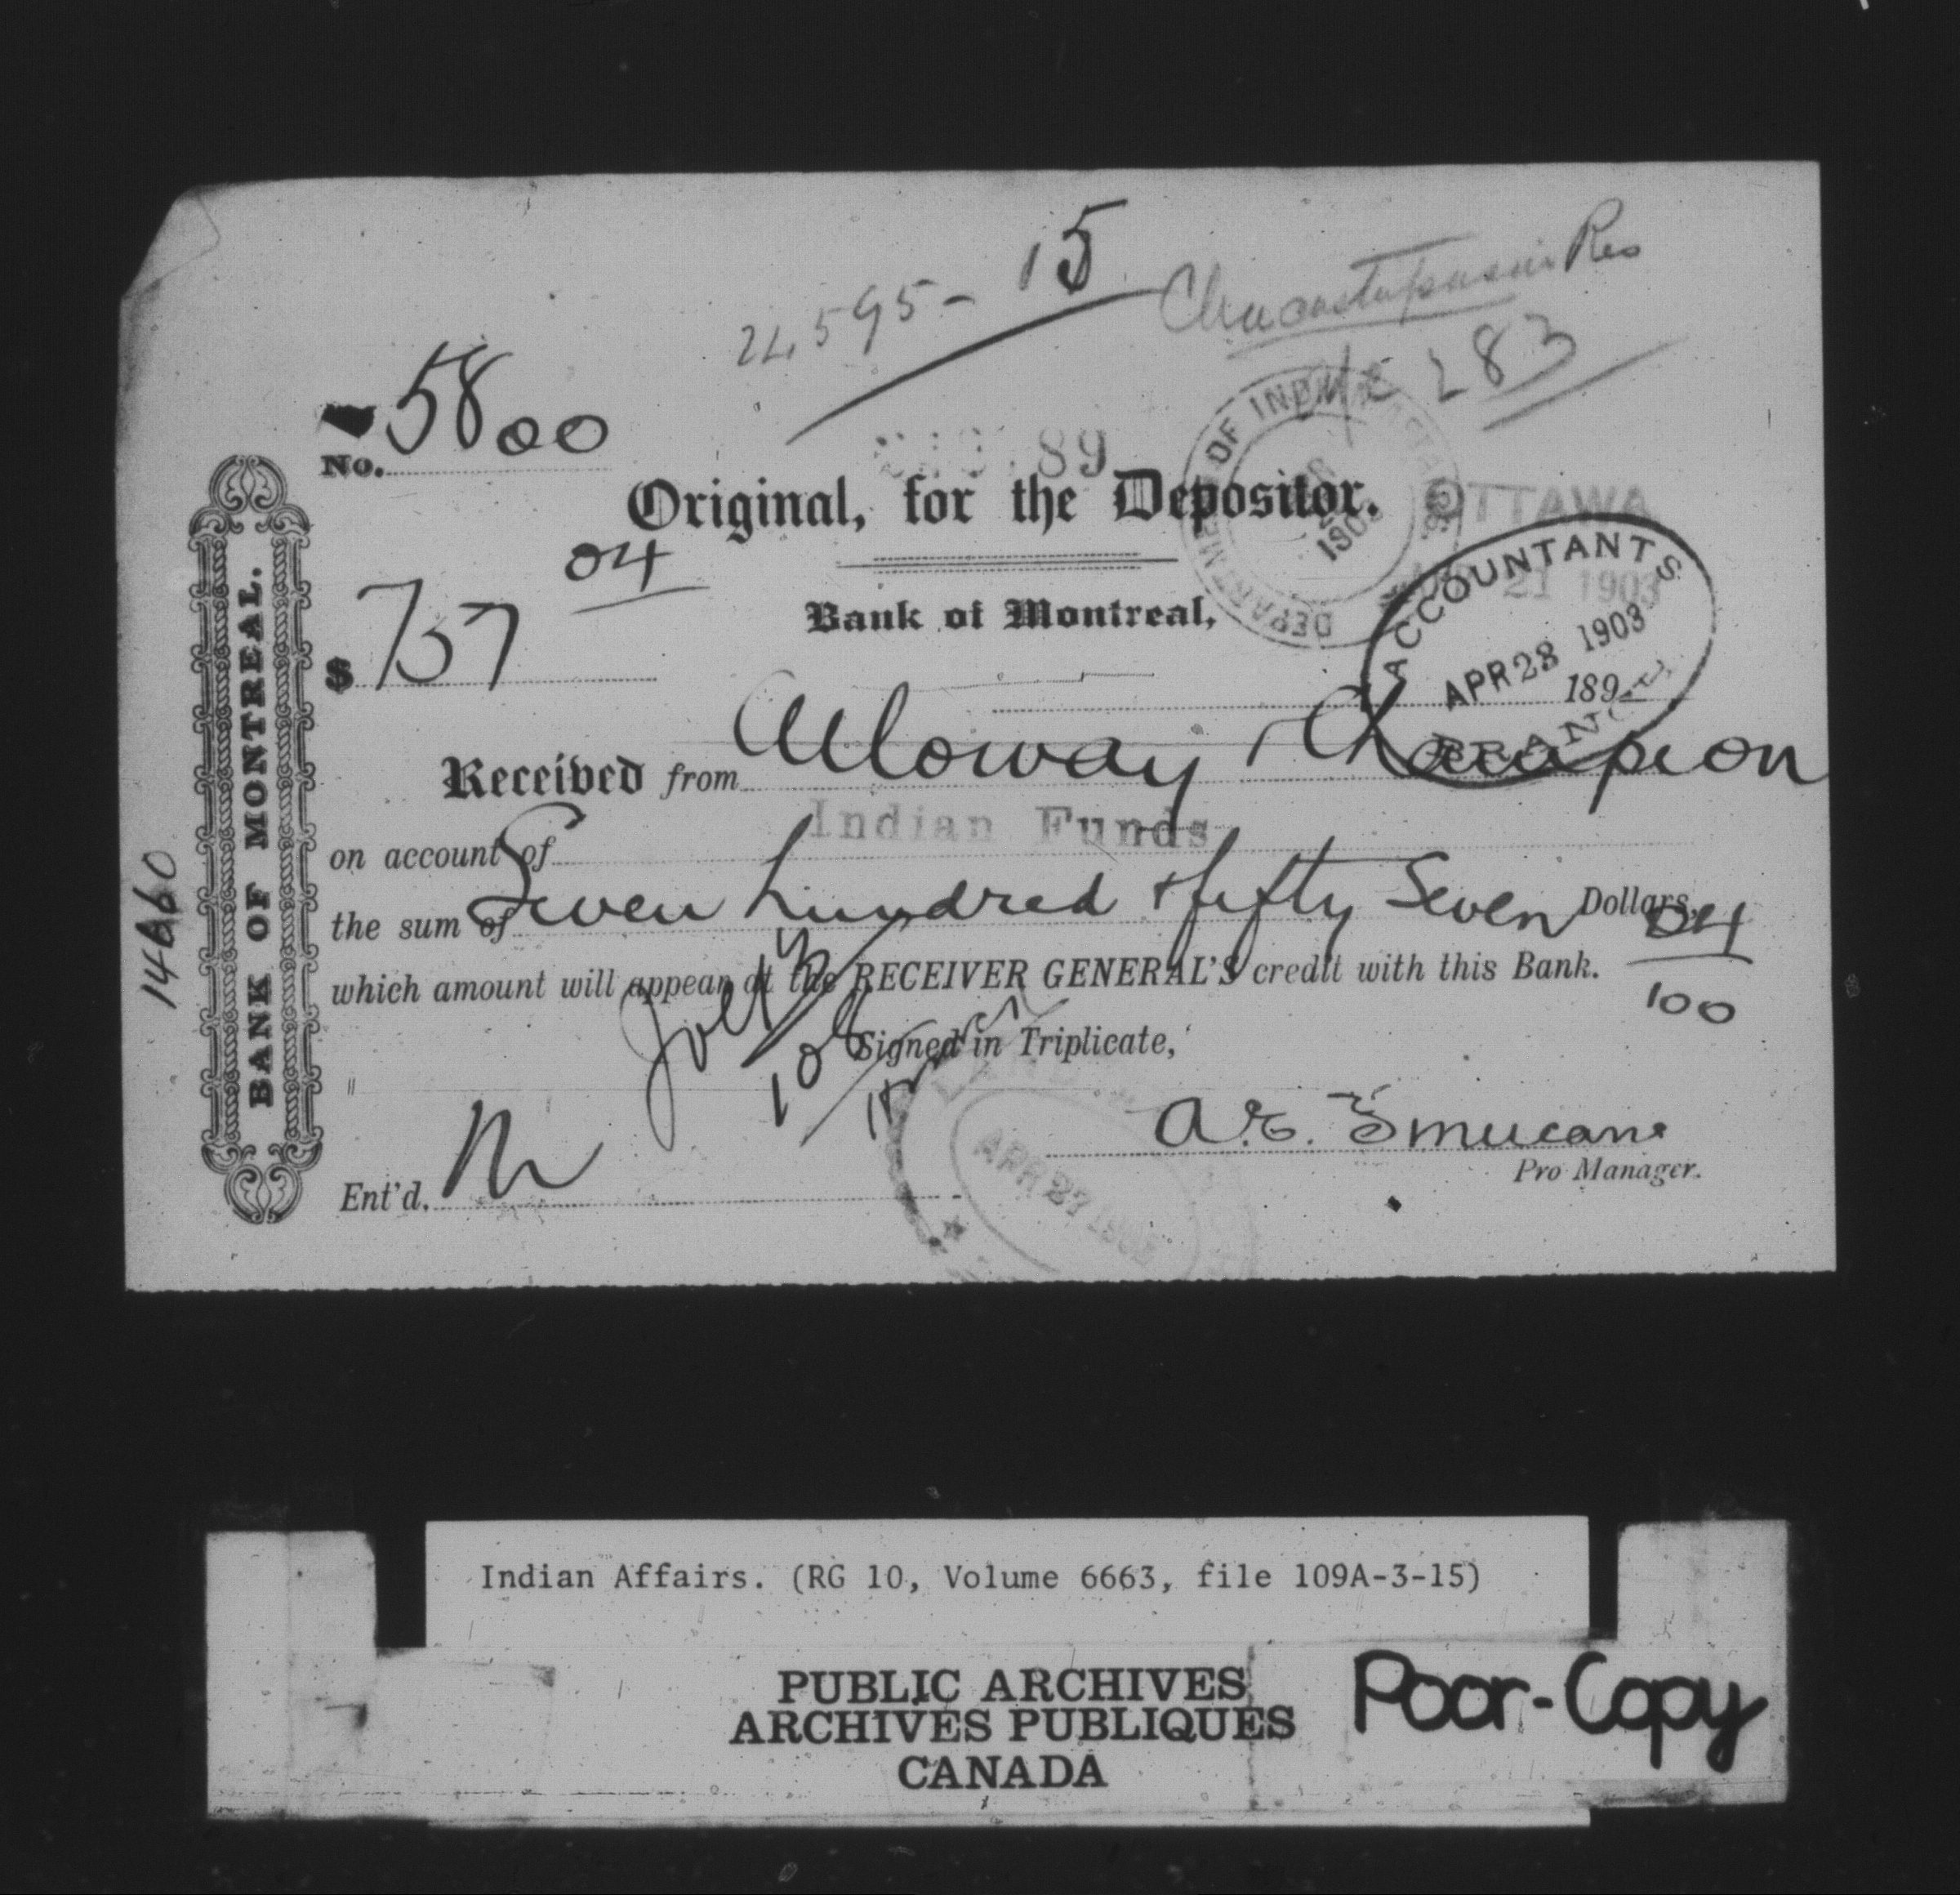 24595-15
Res
283
5800
No.
89
Original, for the Depositor.
DEPARTMENT OF INDIAN AFFAIRS.
1903
OTTAWA
21 1903
$757 04
Bank of Montreal,
ACCOUNTANTS
APR 28 1903
BRANCH
189
Received from Alloway & Champion
on account of Indian Funds
the sum of Seven hundred & fifty Seven Dollars, 04/100
which amount will appear at the RECEIVER GENERAL'S credit with this Bank.
Signed in Triplicate,
Pro Manager.
Ent'd.
APR 27 1903
BANK OF MONTREAL.
Indian Affairs. (RG 10, Volume 6663, file 109A-3-15)
PUBLIC ARCHIVES
ARCHIVES PUBLIQUES
CANADA
Poor-Copy